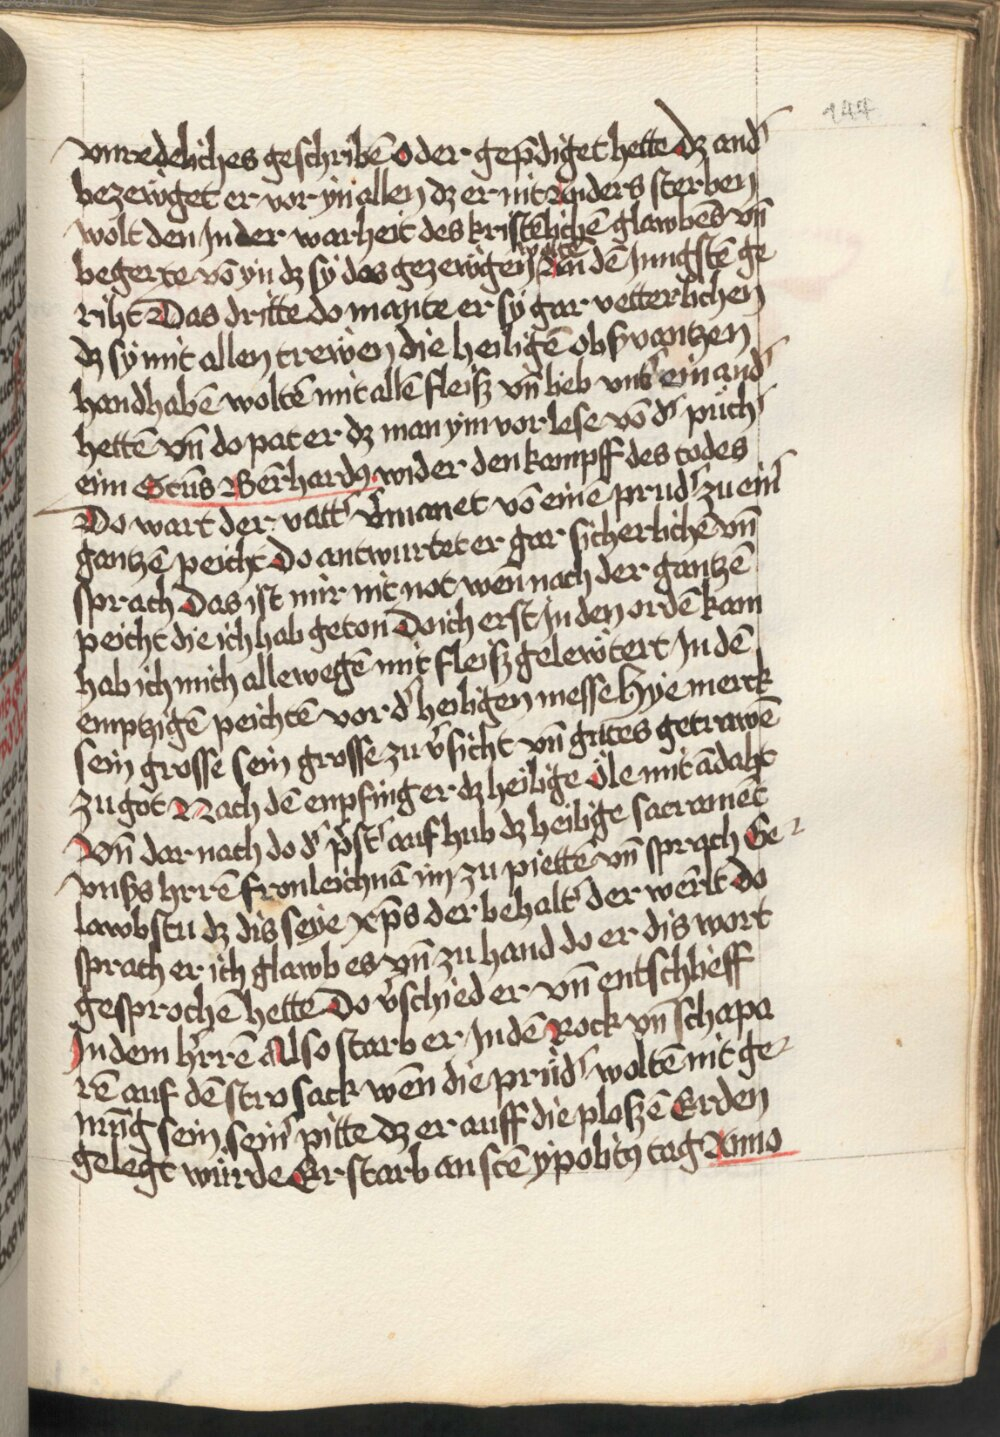 144
vnredeliches geschribē oder gep̄diget hette dz andˀ
bezewget er vor yn allen dz er nit anders sterben
wolt den jn der warheit des kristēlichē glawbens vn̄
begerte vō yn dz sy des gezewgen wern an dē Jungstē ge
riht Das dritte do mante er sy gar vetterlichen
dz sy mit allen trewen die heiligē obsˀvantzen
handhabē woltē mit allē fleisz vn̄ lieb vntˀ einandˀ
hettē vn̄ do pat er dz man ym vor lese vō dˀ pu̇chˀ
eim Sctūs Berhardꝰ wider den kampff des todes
Do wart der vattˀ vˀmanet vō einē prudˀ zu einˀ
gantzē peicht Do antwurtet er gar sicherlichē vn̄
sprach Das ist mir nit not wen̄ nach der gantzē
peicht die ich hab geton Do ich erst jn den ordē kam
hab ich mich allewegē mit fleisz gelewtert jn dē
emptzigē peichtē vor dˀ heiligen messe Hye merck
sein grosse sein grosse zu vˀsicht vn̄ gutes getrawē
zu got Nach dē enpfing er dz heilige öle mit ādaht
Vn̄ dar nach do dˀ p̄stˀ auf hub dz heilige sacramēt
vnsˀs hrrē fronleichnā im zu piettē vn̄ sprach Ge
lawbstu dz dis seye xp̄s der behaltˀ der werlt do
sprach er ich glawb es vn̄ zu hand do er dis wort
gesprochē hette Do vˀschied er vn̄ entschlieff
Jn dem hˀrrē Also starb er jn dē Rock vn̄ schapa
rē auf dē stro sack wēn die prüdˀ woltē nit ge
nn̄g sein seinˀ pitte dz er auff die ploszē Erden
gelegt wu̇rde Er starb an sctē ypolitꝰ tag Anno